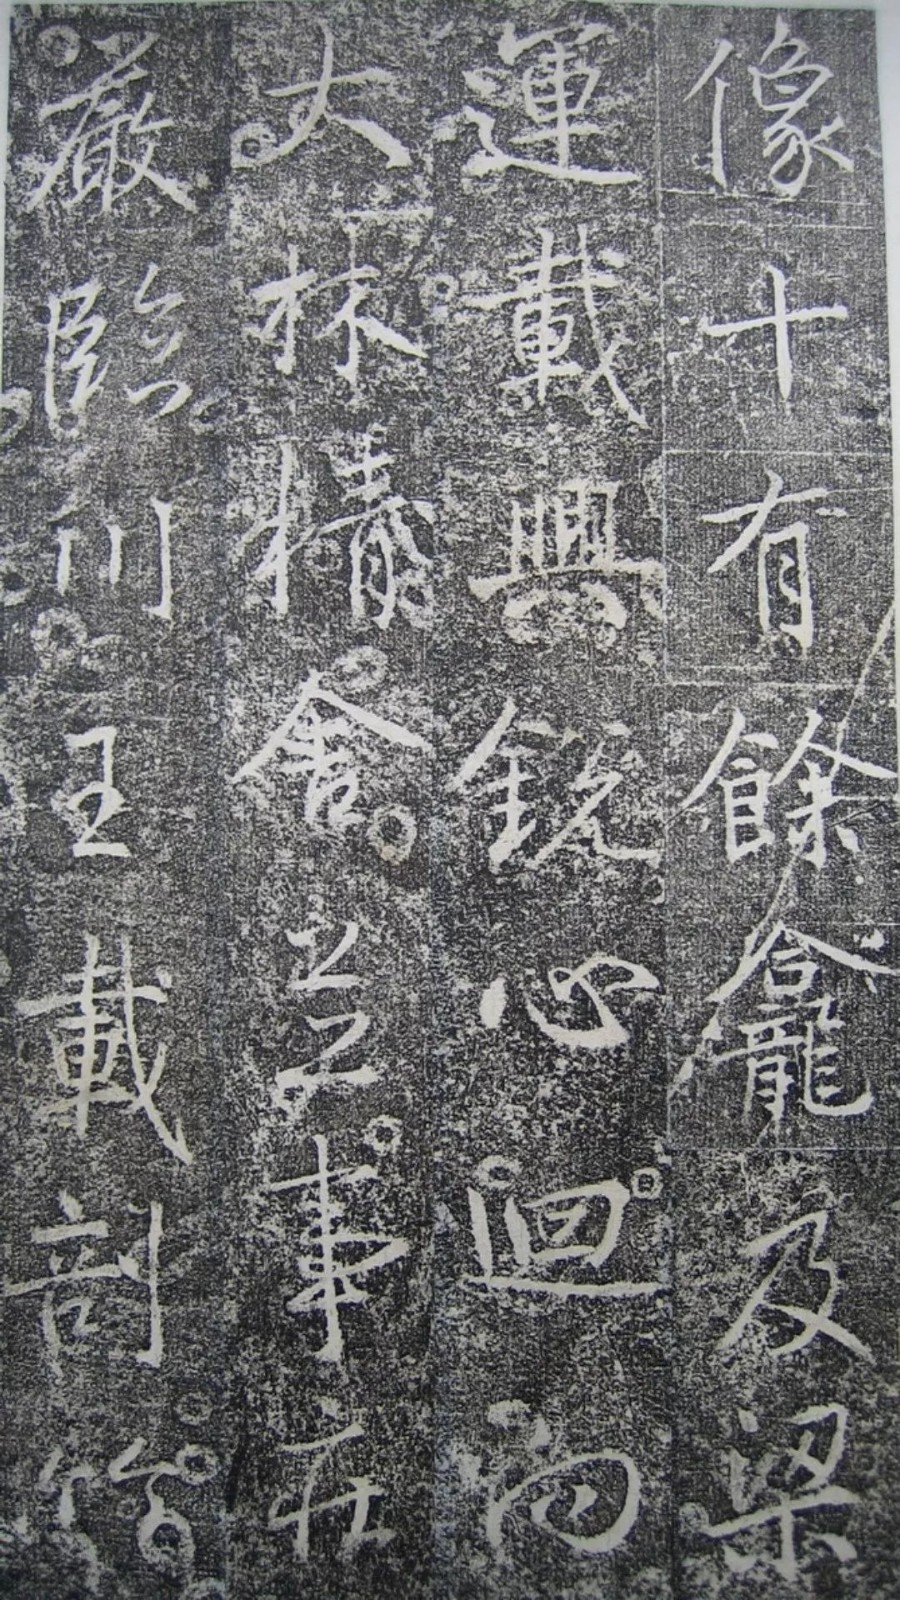 像十有餘龕及梁
運載興銳心迴向
大林精舍之事在
嚴臨川王載剖竹